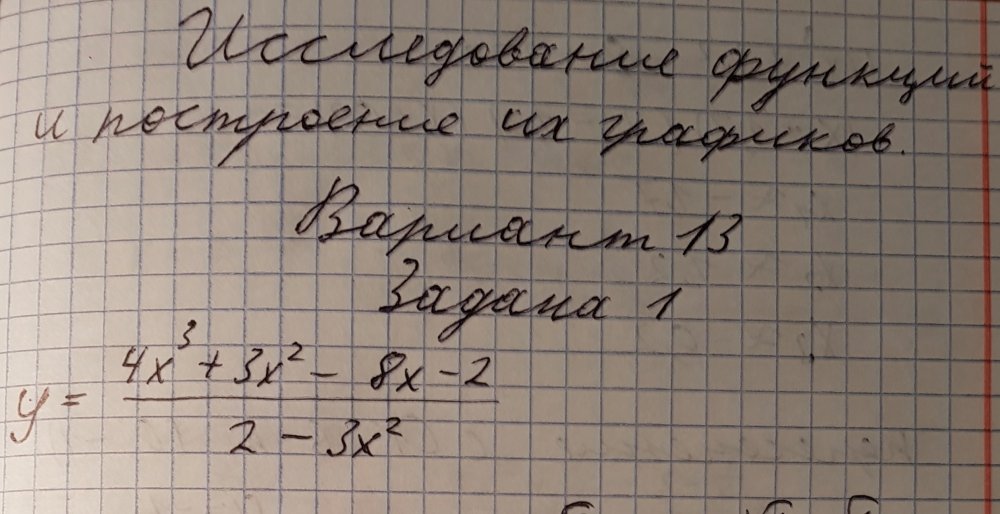 Исследование функций
и построение их графиков.
Вариант 13
Задача 1
y = \frac{4x^3 + 3x^2 - 8x - 2}{2 - 3x^2}